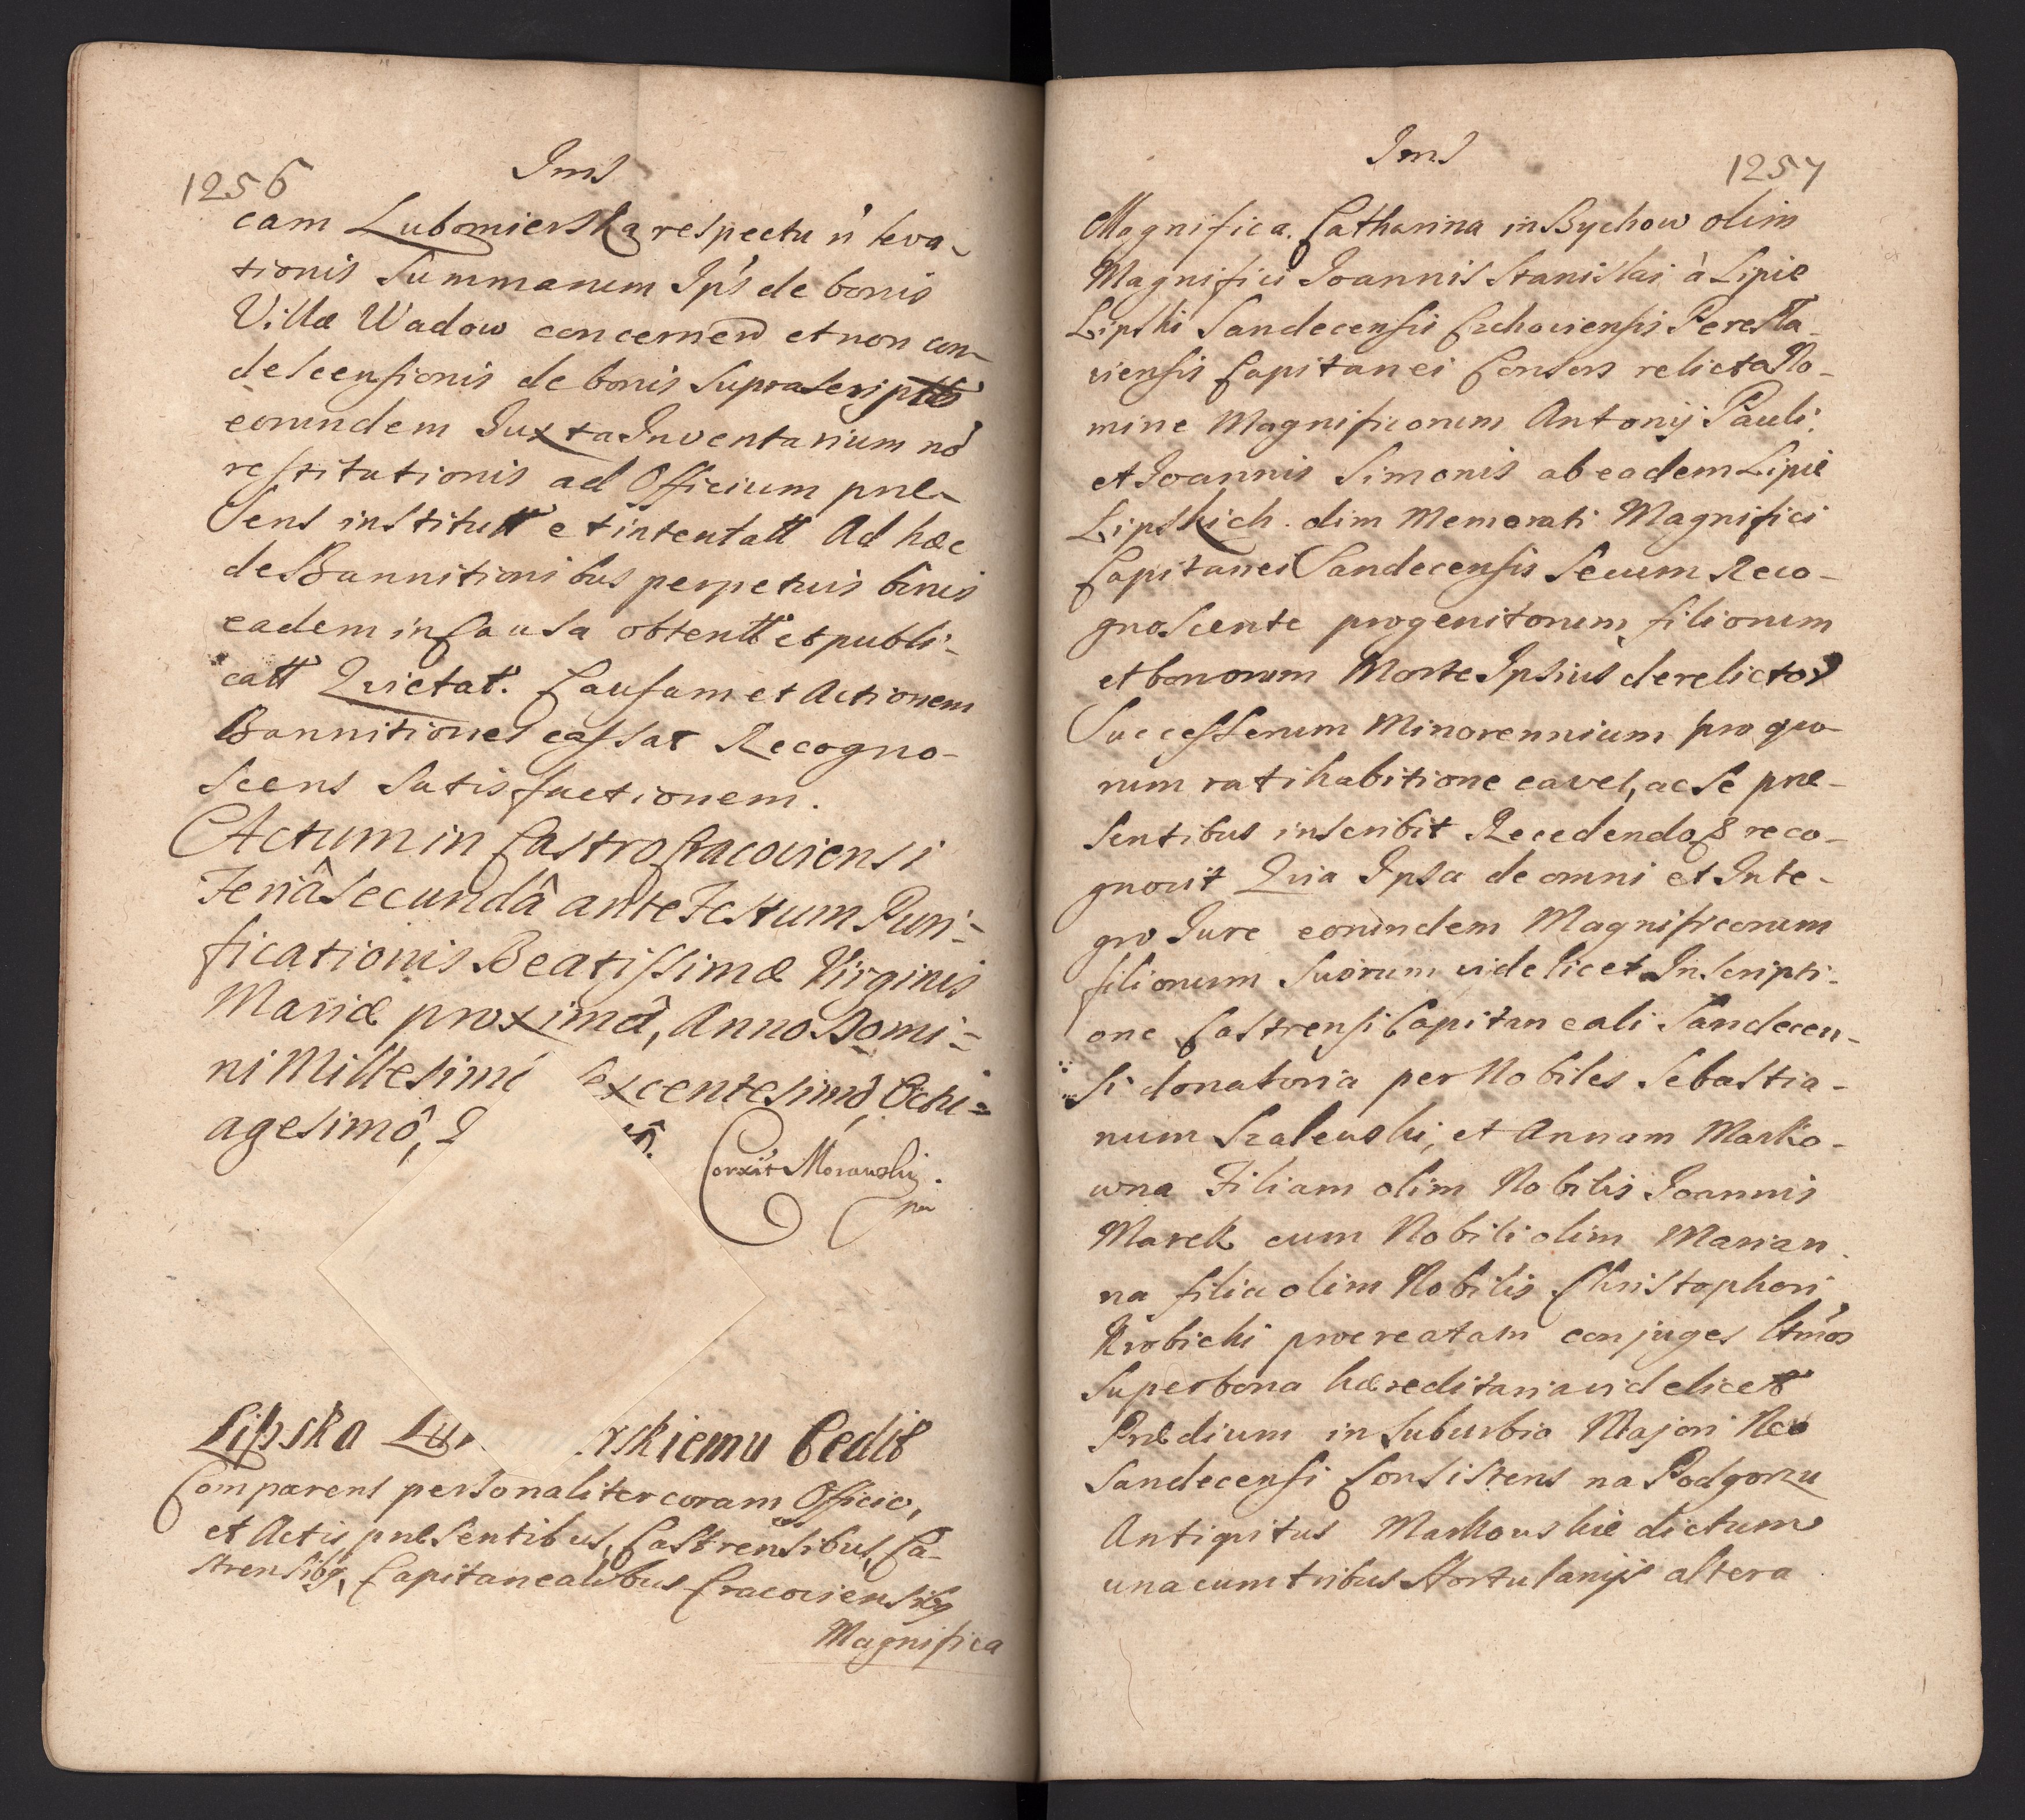 1256
Ims
cam Lubomierska respectu ñ leva-
tionis Summarum Ips de bonis
Villæ Wadow concernen et non con-
descensionis de bonis Suprascriptis
eorundem Juxta Inventarium nõ
restitutionis ad Officium præ-
sens institutt et intentatt Ad hæc
de Bannitionibus perpetuis binis
eadem in Causa obtentt et publi-
catt Quietat. Causam et Actionem
Bannitiones cassat Recogno-
scens Satisfactionem.
Actum in Castro Cracoviensi
Feriâ Secundâ ante Festum Puri-
ficationis Beatissimæ Virginis
Mariæ proximâ, Anno Domi-
ni Millesim excentesimô Octu-
agesimô, Q
Corxit Morawski.
mp
Lipska Lu rskiemu Cedit
Comparens personaliter coram Officio,
et Actis præsentibus, Castrensibus, Ca-
strensibq, Capitanealibus Cracoviensibq
Magnifica
Ims
1257
Magnifica. Catharina in Bychow olim
Magnifici Joannis Stanislai à Lipie
Lipski Sandecensis Czchoviensis Peresla-
viensis Capitanei Consors relicta No-
mine Magnificorum Antonij Pauli.
et Joannis Simonis ab eadem Lipie
Lipskich. olim Memorati Magnifici
Capitanei Sandecensis Secum Reco-
gnoscente progenitorum, filiorum
et bonorum Morte Ipsius derelictor
Successerum Minorennium pro quo-
rum ratihabitione cavet, ac Se præ-
sentibus inscribit Recedendo & reco-
gnovit Quia Ipsa de omni et Inte-
gro Jure eorundem Magnificorum
filiorum Suorum videlicet Inscripti-
one Castrensi Capitaneali Sandecen-
si donatoria per Nobiles Sebastia-
num Szalewski, et Annam Marko-
wna Filiam olim Nobilis Joannis
Marek cum Nobili olim Marian-
na filia olim Nobilis Christophori
Krobicki procreatam conjuges
Super bona hæreditaria videlicet
Prædium in Suburbio Majori Neo
Sandecensi Consistens na Podgorzu
Antiquitus Markowskie dictum
una cum tribus Hortulanijs altera